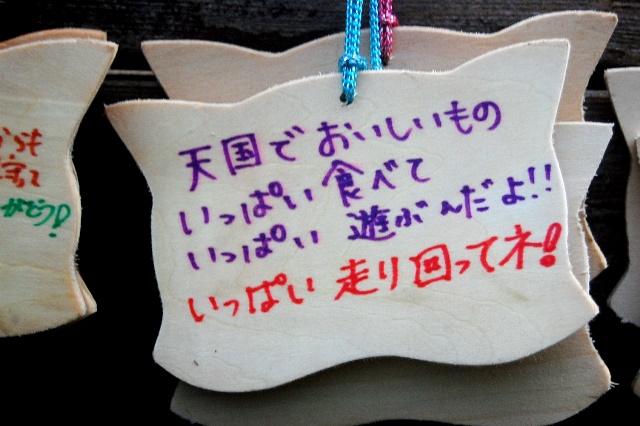 天国でおいしいもの
いっぱい食べて
いっぱい遊ぶんだよ!!
いっぱい走り回ってネ!
からも
がとう!